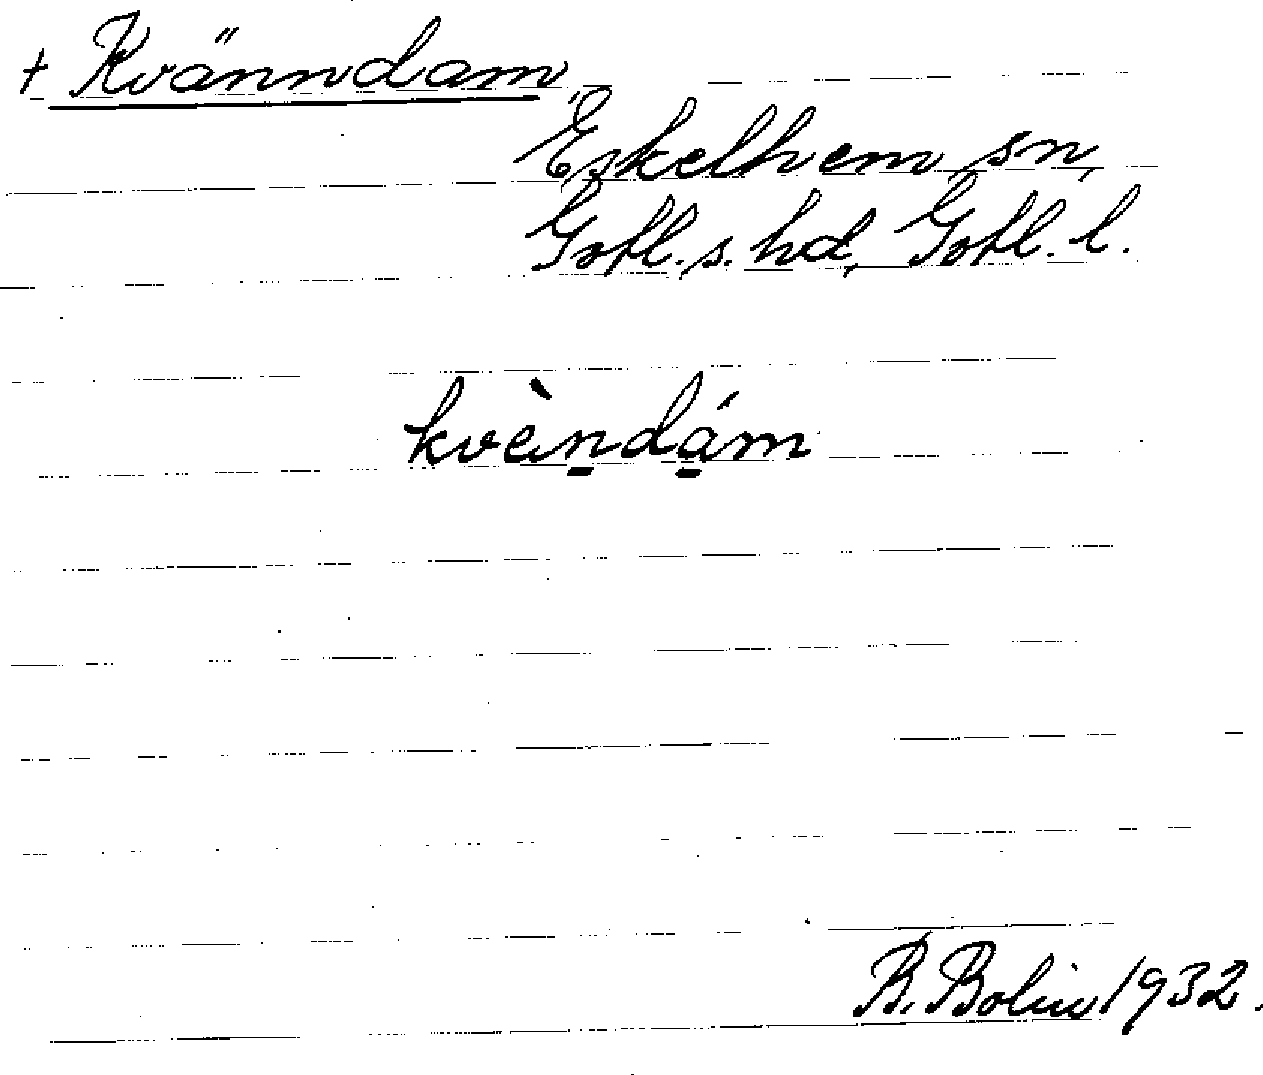 + Kvänndam
Eskelhem sn,
Gotl. s. hd, Gotl. l.
kvèn̠dá̠m
B. Bolin 1932.